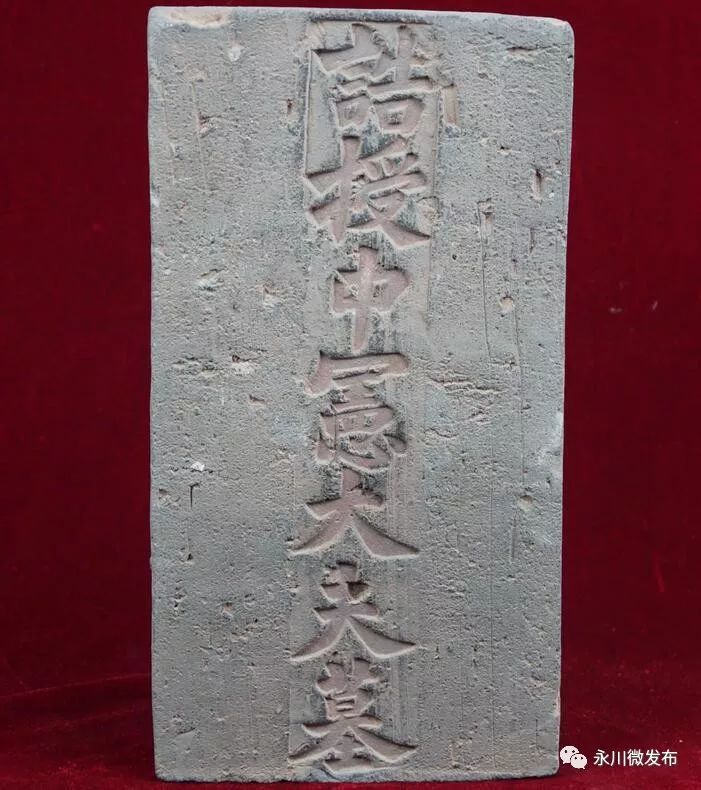 誥授中憲大夫墓
永川微发布